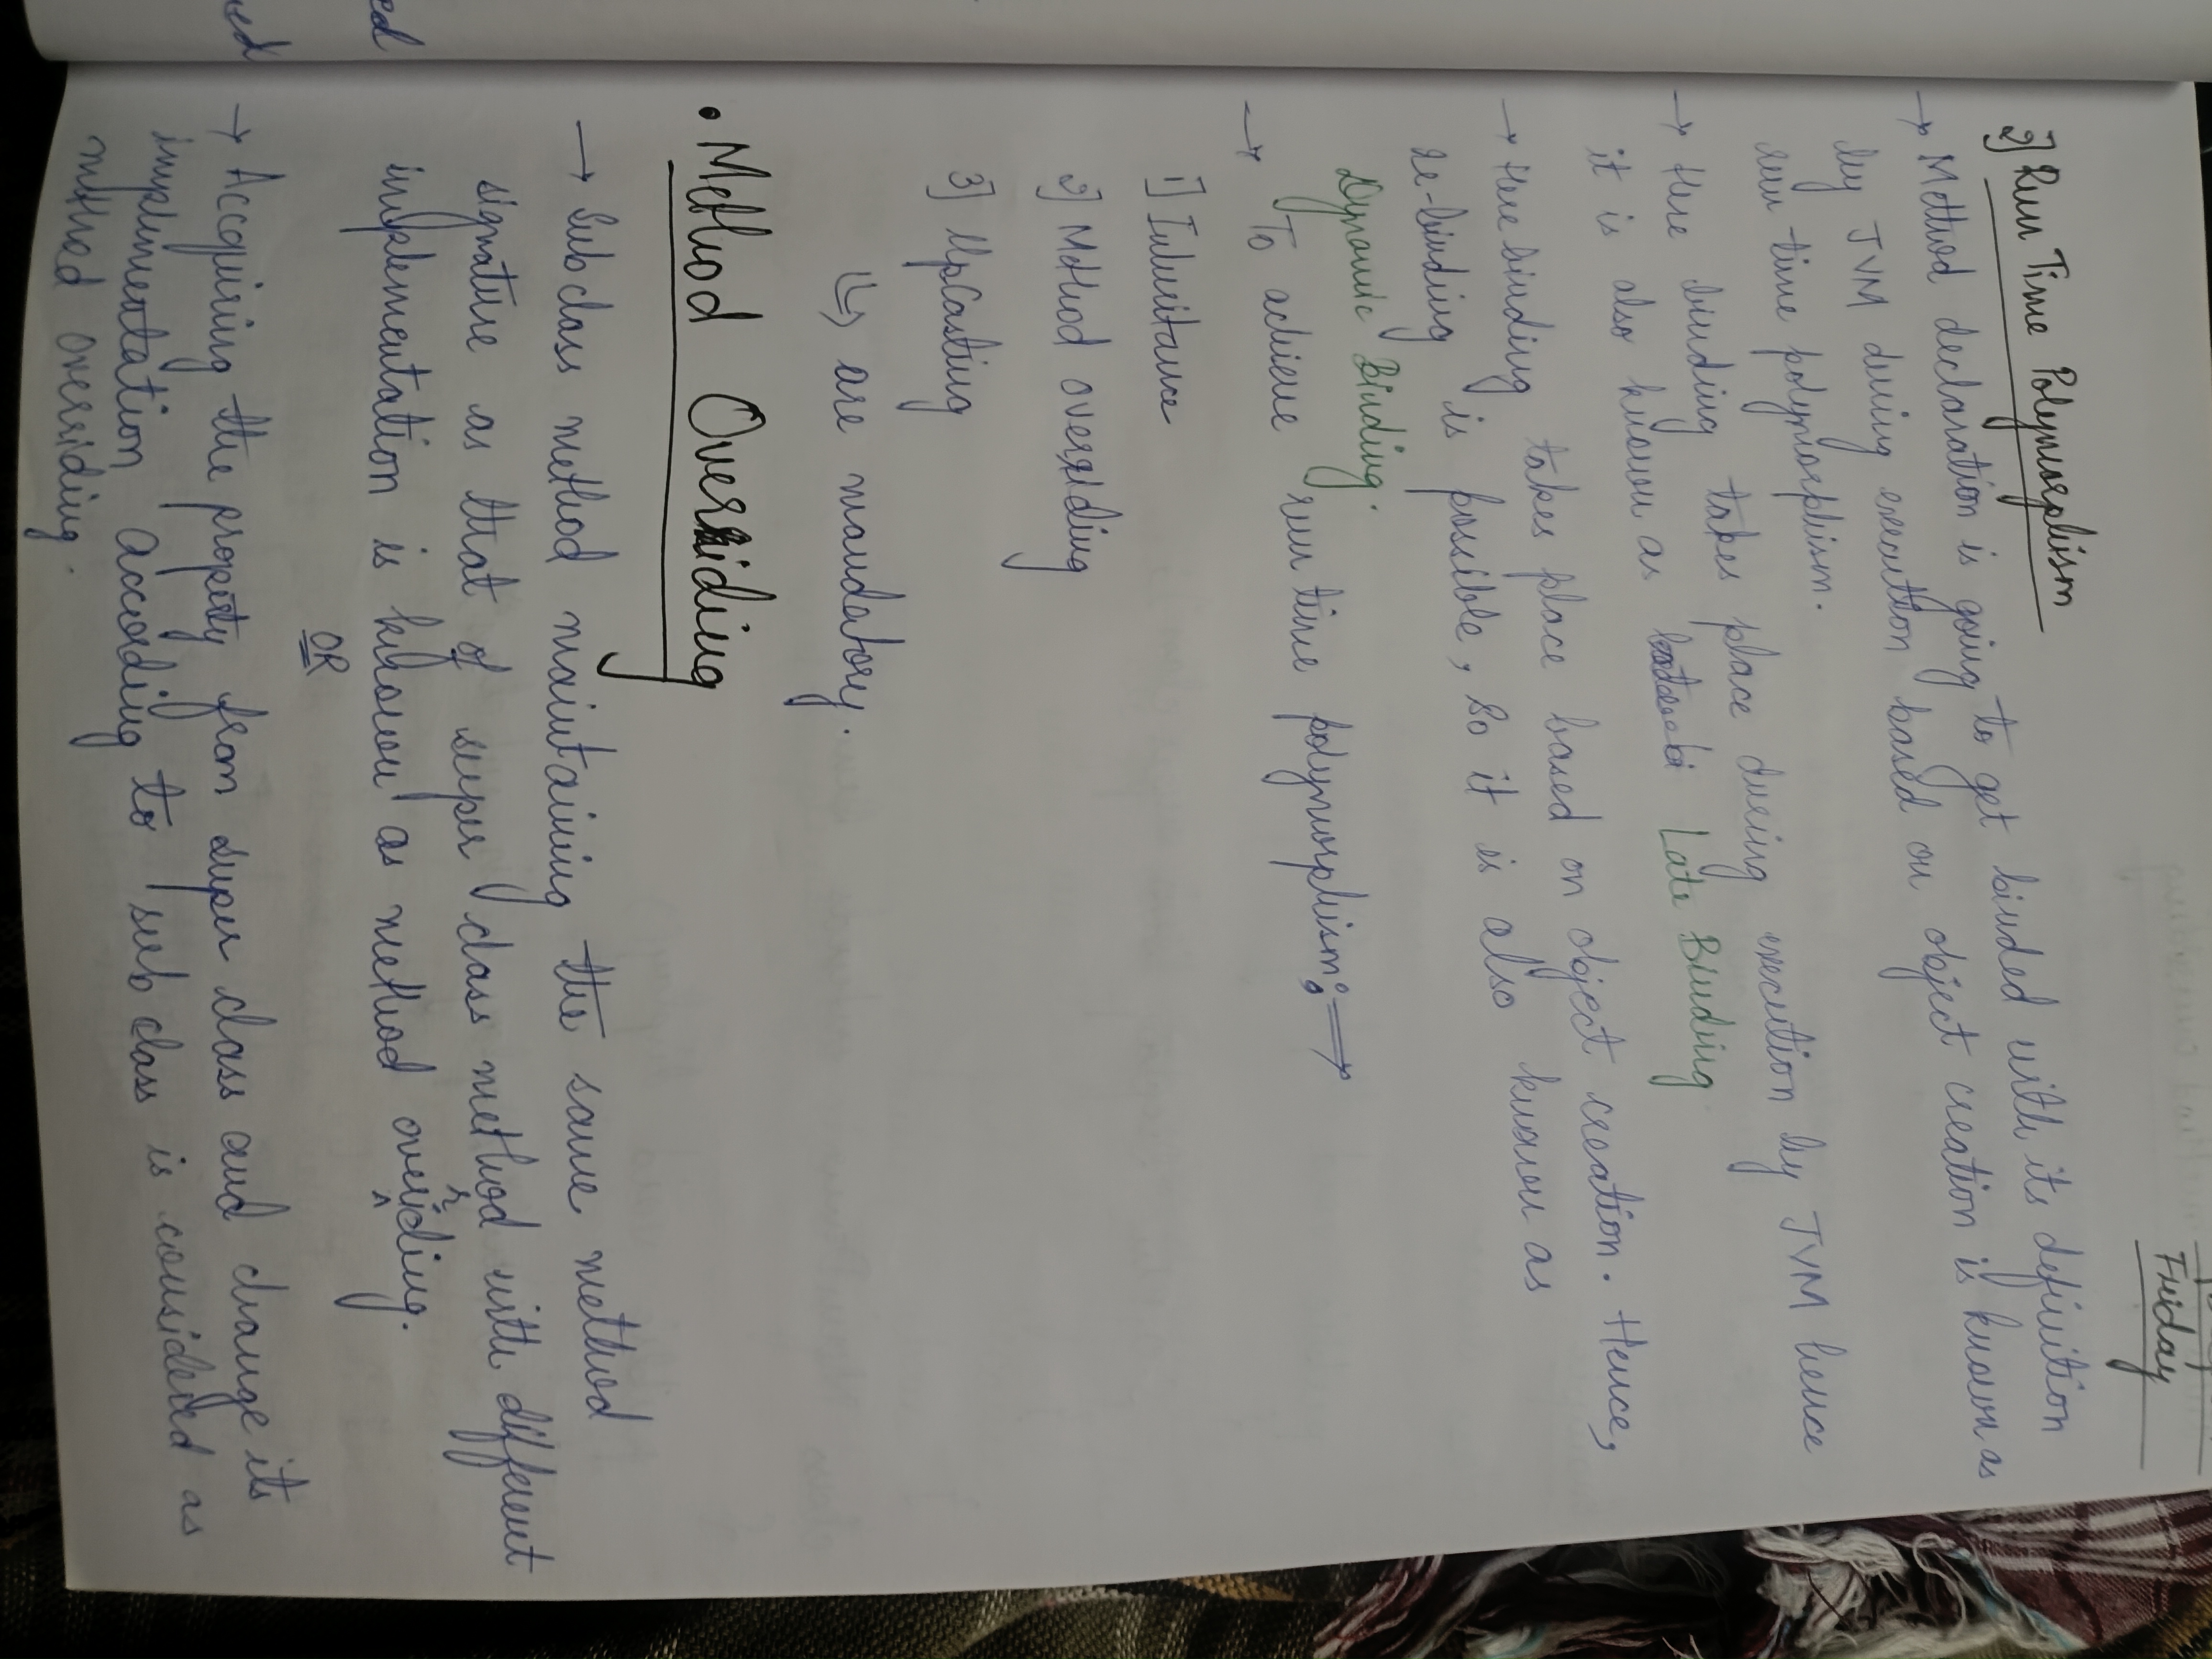 Friday
2] Run Time Polymorphism
→ Method declaration is going to get binded with its definition
by JVM during execution based on object creation is known as
run time polymorphism.
→ Here binding takes place during execution by JVM hence
it is also known as Late Binding
→ Here binding takes place based on object creation. Hence,
re-binding is possible, So it is also known as
Dynamic Binding.
→ To achieve run time polymorphism; ⟹
1] Inheritance
2] Method overriding
3] UpCasting
↳ are mandatory.
• Method Overriding
→ Sub class method maintaining the same method
signature as that of super class method with different
implementation is known as method overriding.
OR
→ Accquiring the property from super class and change its
implementation According to sub class is considered as
method overriding.
ed
ed